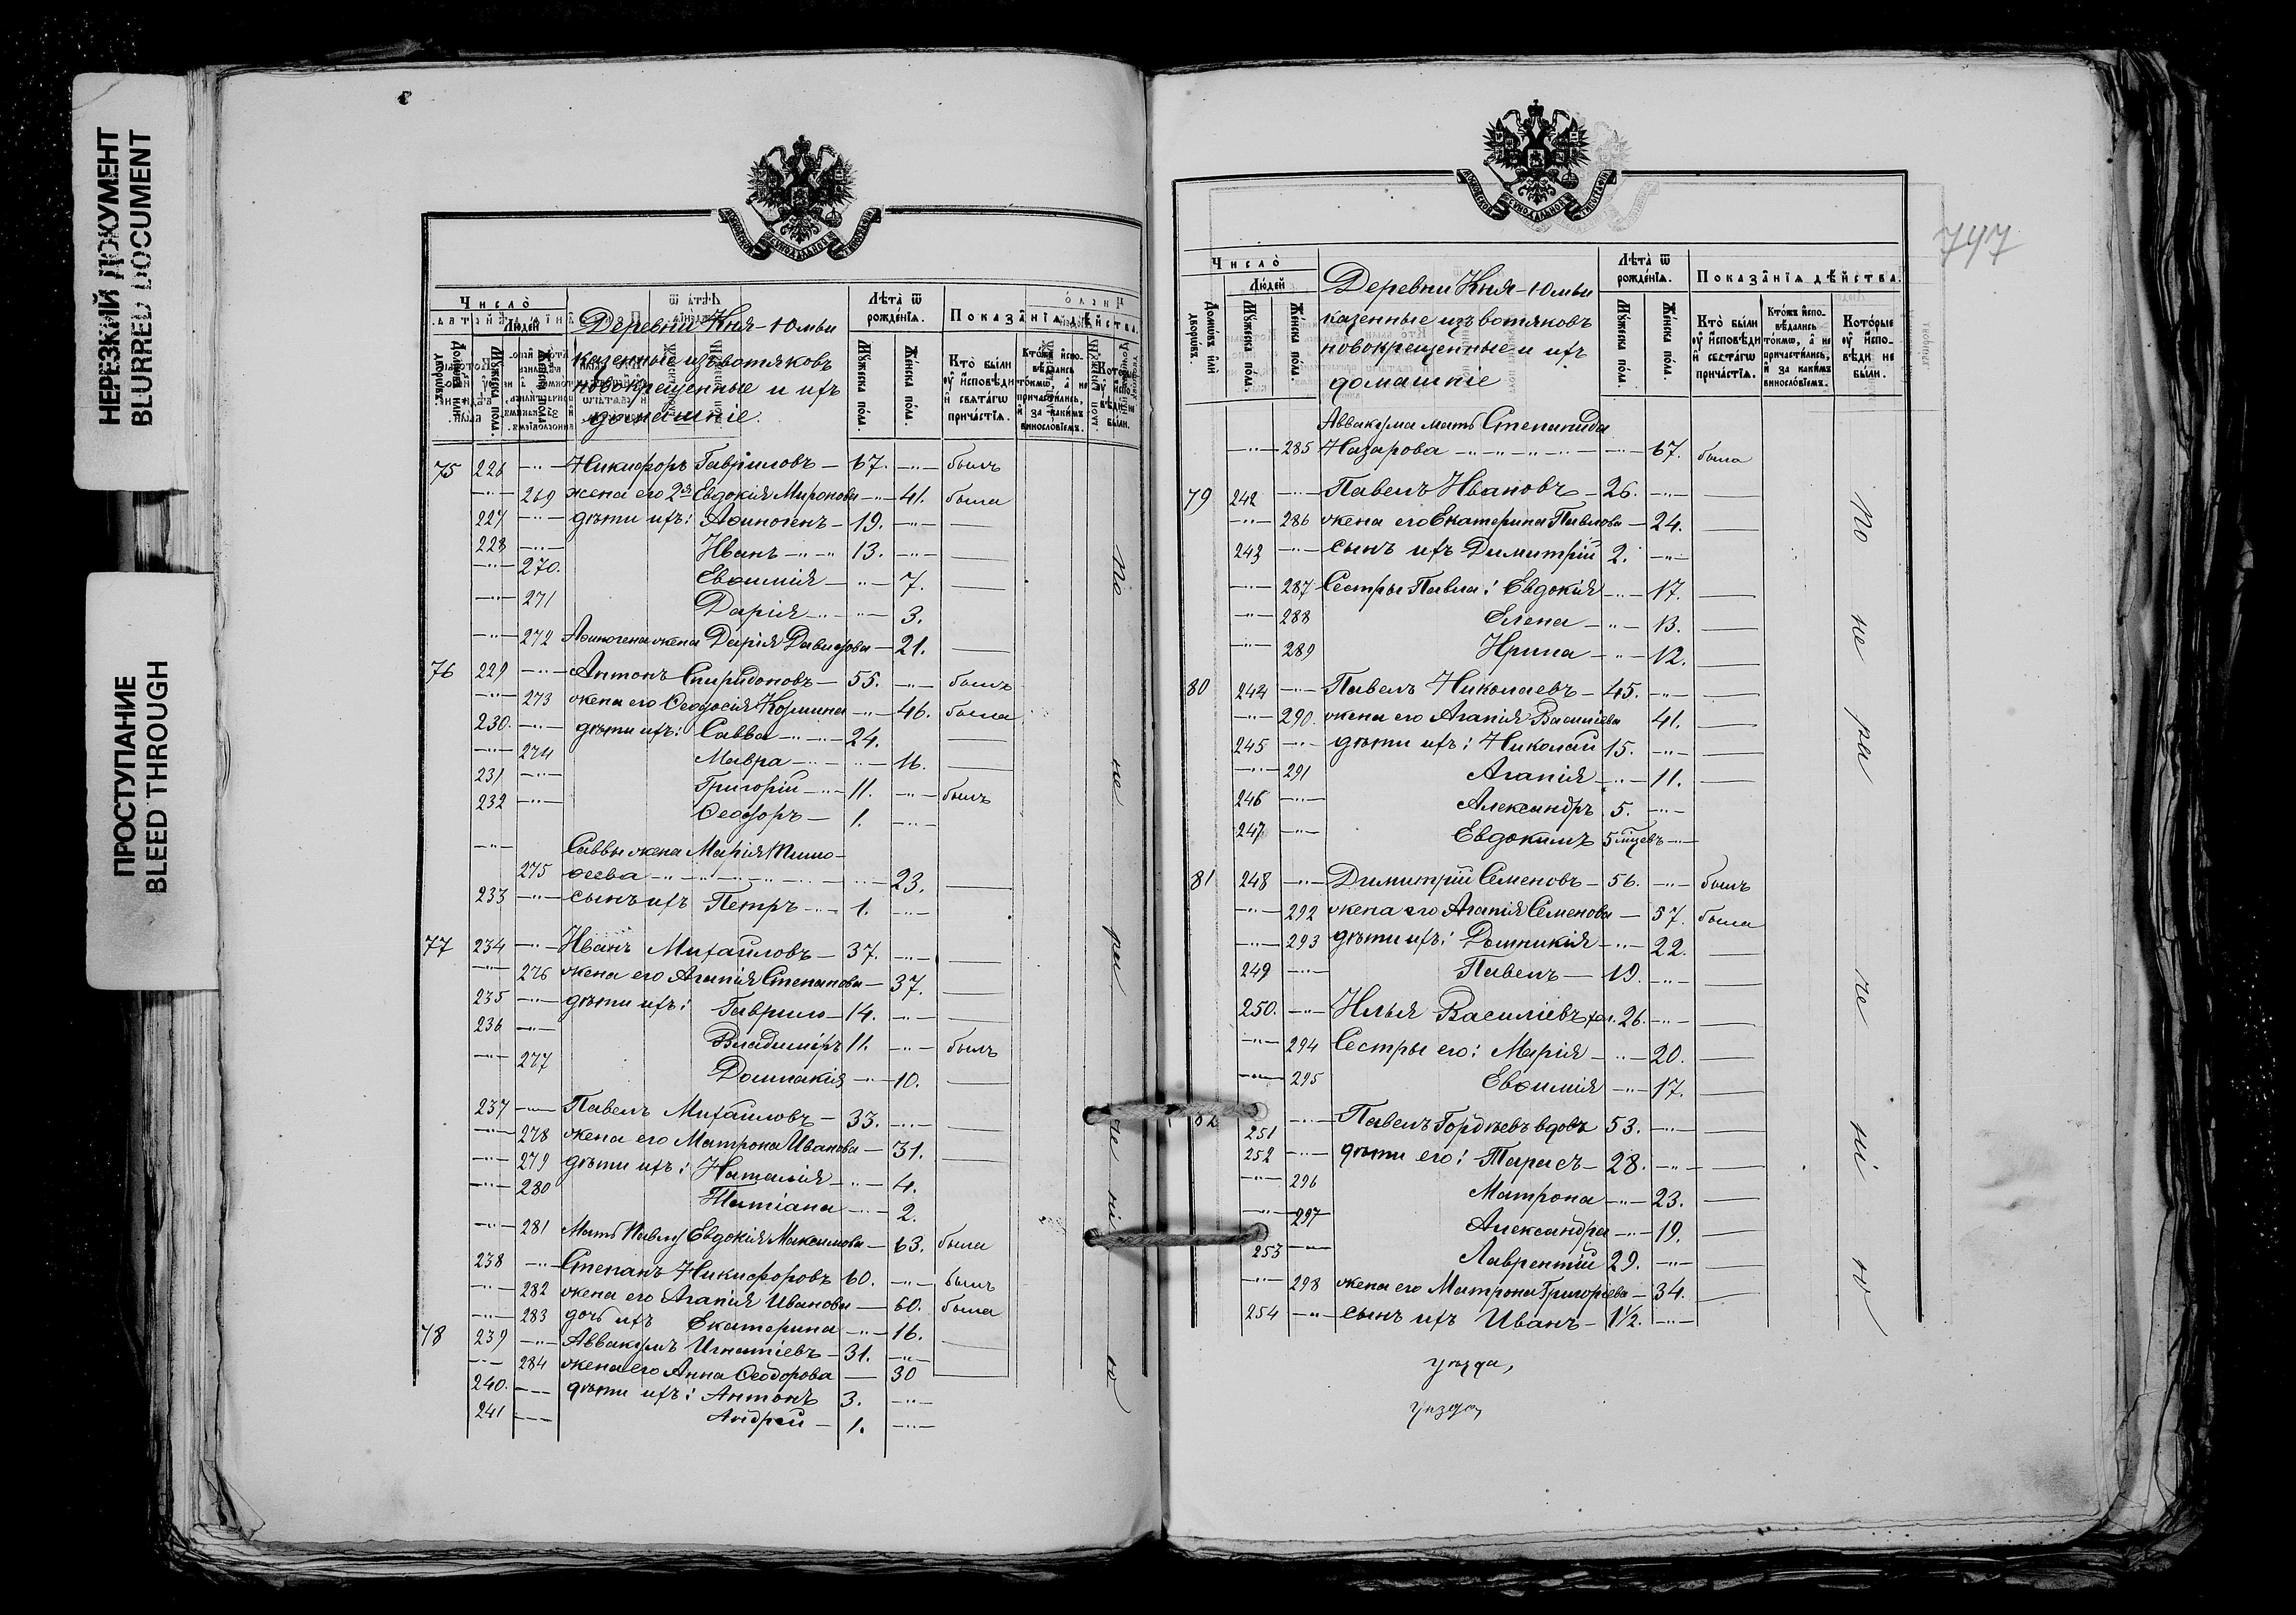 НЕРЕЗКИЙ ДОКУМЕНТ
BLURRED DOCUMENT
ПРОСТУПАНИЕ
BLEED THROUGH
Число̀
Людей
Деревни Кня-Юмьи
казенные изъ вотяковъ
новокрещенные и ихъ
домашніе.
Лѣта̀ ѿ рожде́нїѧ.
Показа̂нїѧ дѣ́йства.
Мꙋ́жеска по́лꙋ.
Же́нска по́лꙋ.
Кто̀ бы́ли ᲂу҆ и҆́споведи и҆ свѧта́гѡ прича́стїѧ.
75 226 —〃— Никифоръ Гавриловъ — 67. —〃— былъ
—〃— 269 жена его 2я Евдокія Миронова —〃— 41. была
227 —〃— дѣти ихъ: Аѳиногенъ — 19. —〃— —
228 —〃— Иванъ —〃—〃 13. —〃— —
—〃— 270. Евѳимія —〃— 7. —
—〃— 271 Дарія —〃— 3.
—〃— 272 Аѳиногена жена Дарія Давидова — 21. —
76 229 —〃— Антонъ Спиридоновъ — 55. —〃— былъ
—〃— 273 жена его Ѳеодосія Козмина —〃— 46. была
230. —〃— дѣти ихъ: Савва —〃— 24. —
—〃— 274 Мавра —〃— 16. —
231 —〃— Григорій —〃— 11. —〃— былъ
232 —〃— Ѳеодоръ — 1. —〃—
—〃— Саввы жена Марія Тимо-
275 ѳеева —〃—〃— 23. —
233 —〃— сынъ ихъ Петръ —〃— 1. —〃—
77 234 —〃— Иванъ Михаиловъ — 37. —〃— —
—〃— 276 жена его Агапія Степанова — 37. —
235 —〃— дѣти ихъ: Гаврило — 14. —〃— —
236 —〃— Владиміръ 11. —〃— былъ
—〃— 277 Домникія —〃— 10. —
237 —〃— Павелъ Михаиловъ — 33. —〃— —
—〃— 278 жена его Матрона Иванова — 31. —
—〃— 279 дѣти ихъ: Наталія —〃— 4.
—〃— 280 Татіана —〃— 2.
—〃— 281 Мать Павлу Евдокія Максимова — 63. была
238 —〃— Степанъ Никифоровъ 60. —〃— былъ
—〃— 282 жена его Агапія Иванова — 60. была
—〃— 283 дочь ихъ Екатерина —〃— 16. —
78 239 —〃— Аввакумъ Игнатіевъ — 31. —〃—
—〃— 284 жена его Анна Ѳеодорова — 30 —
240. —〃— дѣти ихъ: Антонъ 3. —〃—
241 —〃— Андрей — 1. —〃—
по не ра че ні ю
747
Число̀
Людей
Домѡ́въ и҆лѝ дворѡ́въ.
Мꙋ́жеска по́лꙋ.
Же́нска по́лꙋ.
Деревни Кня-Юмьи
казенные изъ вотяковъ
новокрещенные и ихъ
домашніе
Лѣта̀ ѿ рожде́нїѧ.
Показа̂нїѧ дѣ́йства.
Мꙋ́жеска по́лꙋ.
Же́нска по́лꙋ.
Кто̀ бы́ли ᲂу҆ и҆́споведи и҆ свѧта́гѡ прича́стїѧ.
Кто́жъ и҆спове́дались то́кмѡ, а҆ не причасти́лись, и҆ за каки́мъ винослѡ́вїемъ.
Кото́рые ᲂу҆ и҆́споведи не бы́ли.
Аввакума мать Степанида
—〃— 285 Назарова —〃—〃—〃— 67. была
79 242 —〃— Павелъ Ивановъ — 26. —〃— —
—〃— 286 жена его Екатерина Павлова — 24. —
243 —〃— сынъ ихъ Димитрій 2. —〃—
—〃— 287 Сестры Павла: Евдокія —〃— 17. —
—〃— 288 Елена —〃— 13. —
—〃— 289 Ирина —〃— 12. —
80 244 —〃— Павелъ Николаевъ — 45. —〃— —
—〃— 290. жена его Агапія Василіева 41. —
245 —〃— дѣти ихъ: Николай 15. —〃— —
—〃— 291 Агапія —〃— 11. —
246 —〃— Александръ 5. —〃—
247 —〃— Евдокимъ 5 мцевъ —〃—
81 248 —〃— Димитрій Семеновъ — 56. —〃— былъ
—〃— 292 жена его Агапія Семенова — 57. была
—〃— 293 дѣти ихъ: Домникія —〃— 22. —
249 —〃— Павелъ — 19. —〃— —
250. —〃— Илья Василіевъ хол. 26. —〃— —
—〃— 294 Сестры его: Марія —〃— 20. —
—〃— 295 Евѳимія —〃— 17. —
82 251 —〃— Павелъ Гордѣевъ вдовъ 53. —〃— —
252 —〃— дѣти его: Тарасъ — 28. —〃— —
—〃— 296 Матрона —〃— 23. —
—〃— 297 Александра —〃— 19. —
253 —〃— Лаврентій 29. —〃— —
—〃— 298 жена его Матрона Григоріева — 34. —
254 —〃— сынъ ихъ Иванъ — 1½. —〃—
по не ра че ні ю
уѣзда,
уѣзда,